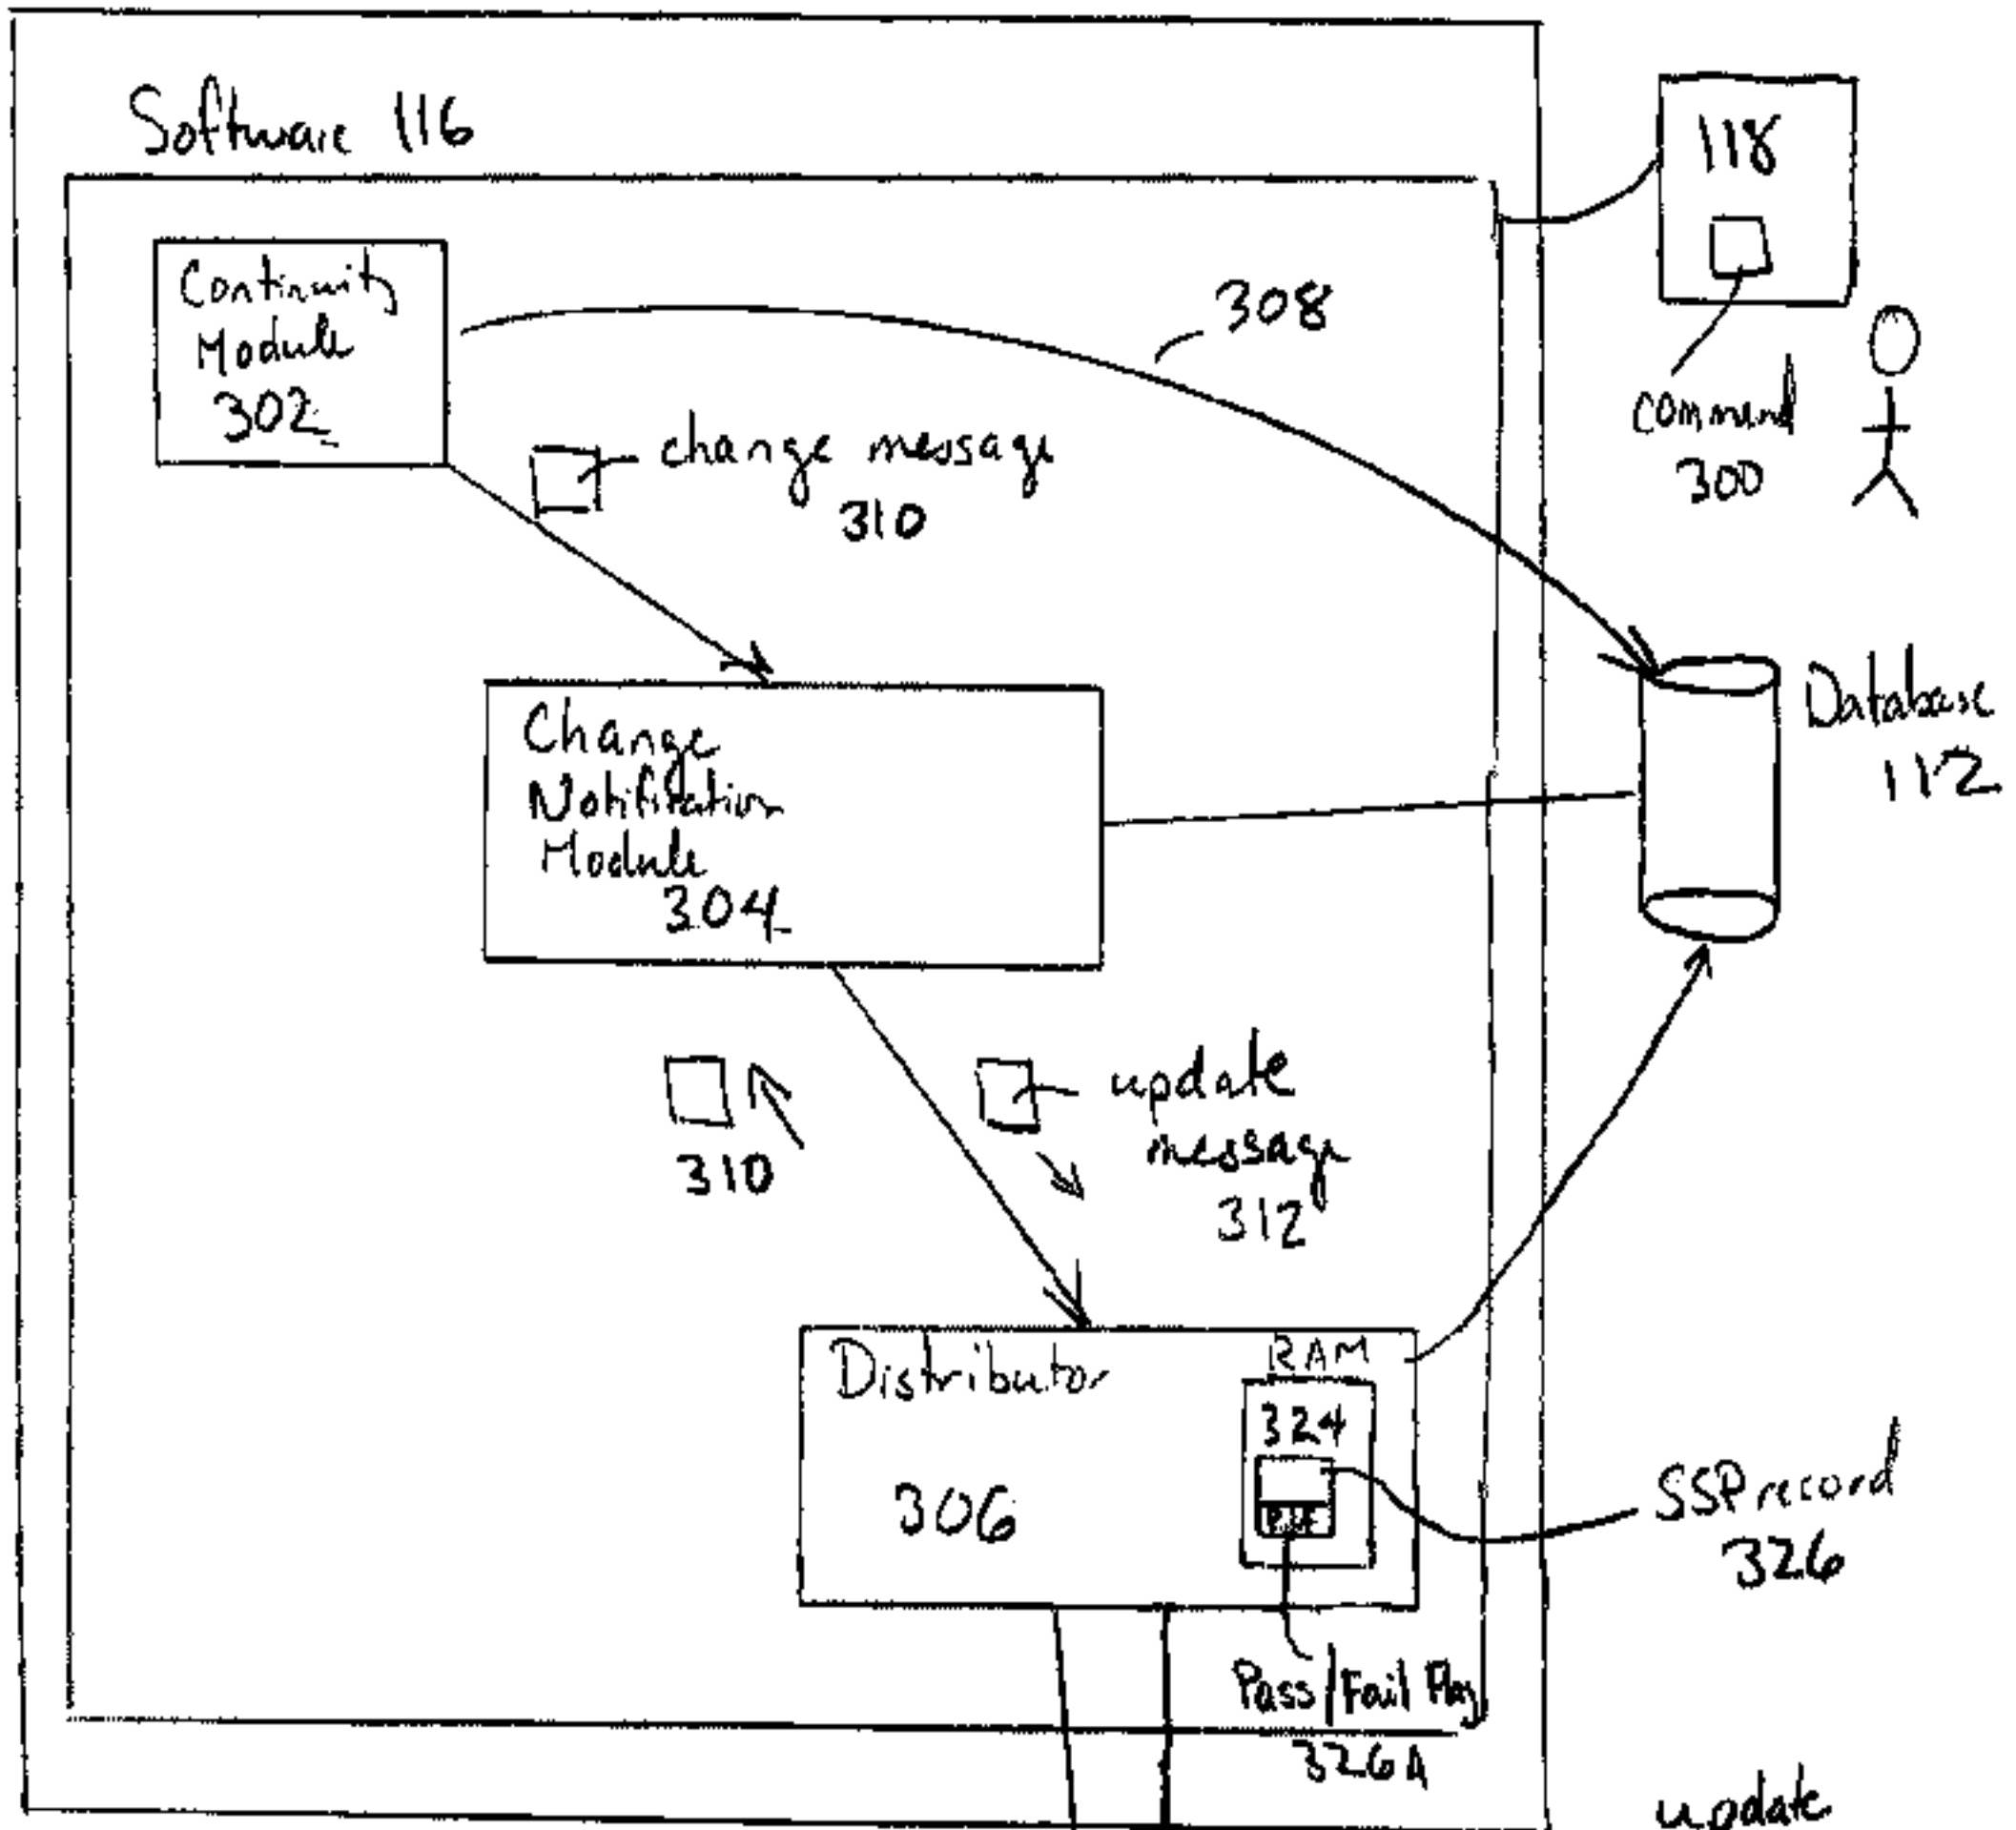 Software 116
118
Continuity
Module
302
308
command
300
change message
310
Database
112
Change
Notification
Module
304
310
update
message
312
Distributor
306
RAM
324
P/F
SSP record
326
Pass/Fail Flag
326A
update